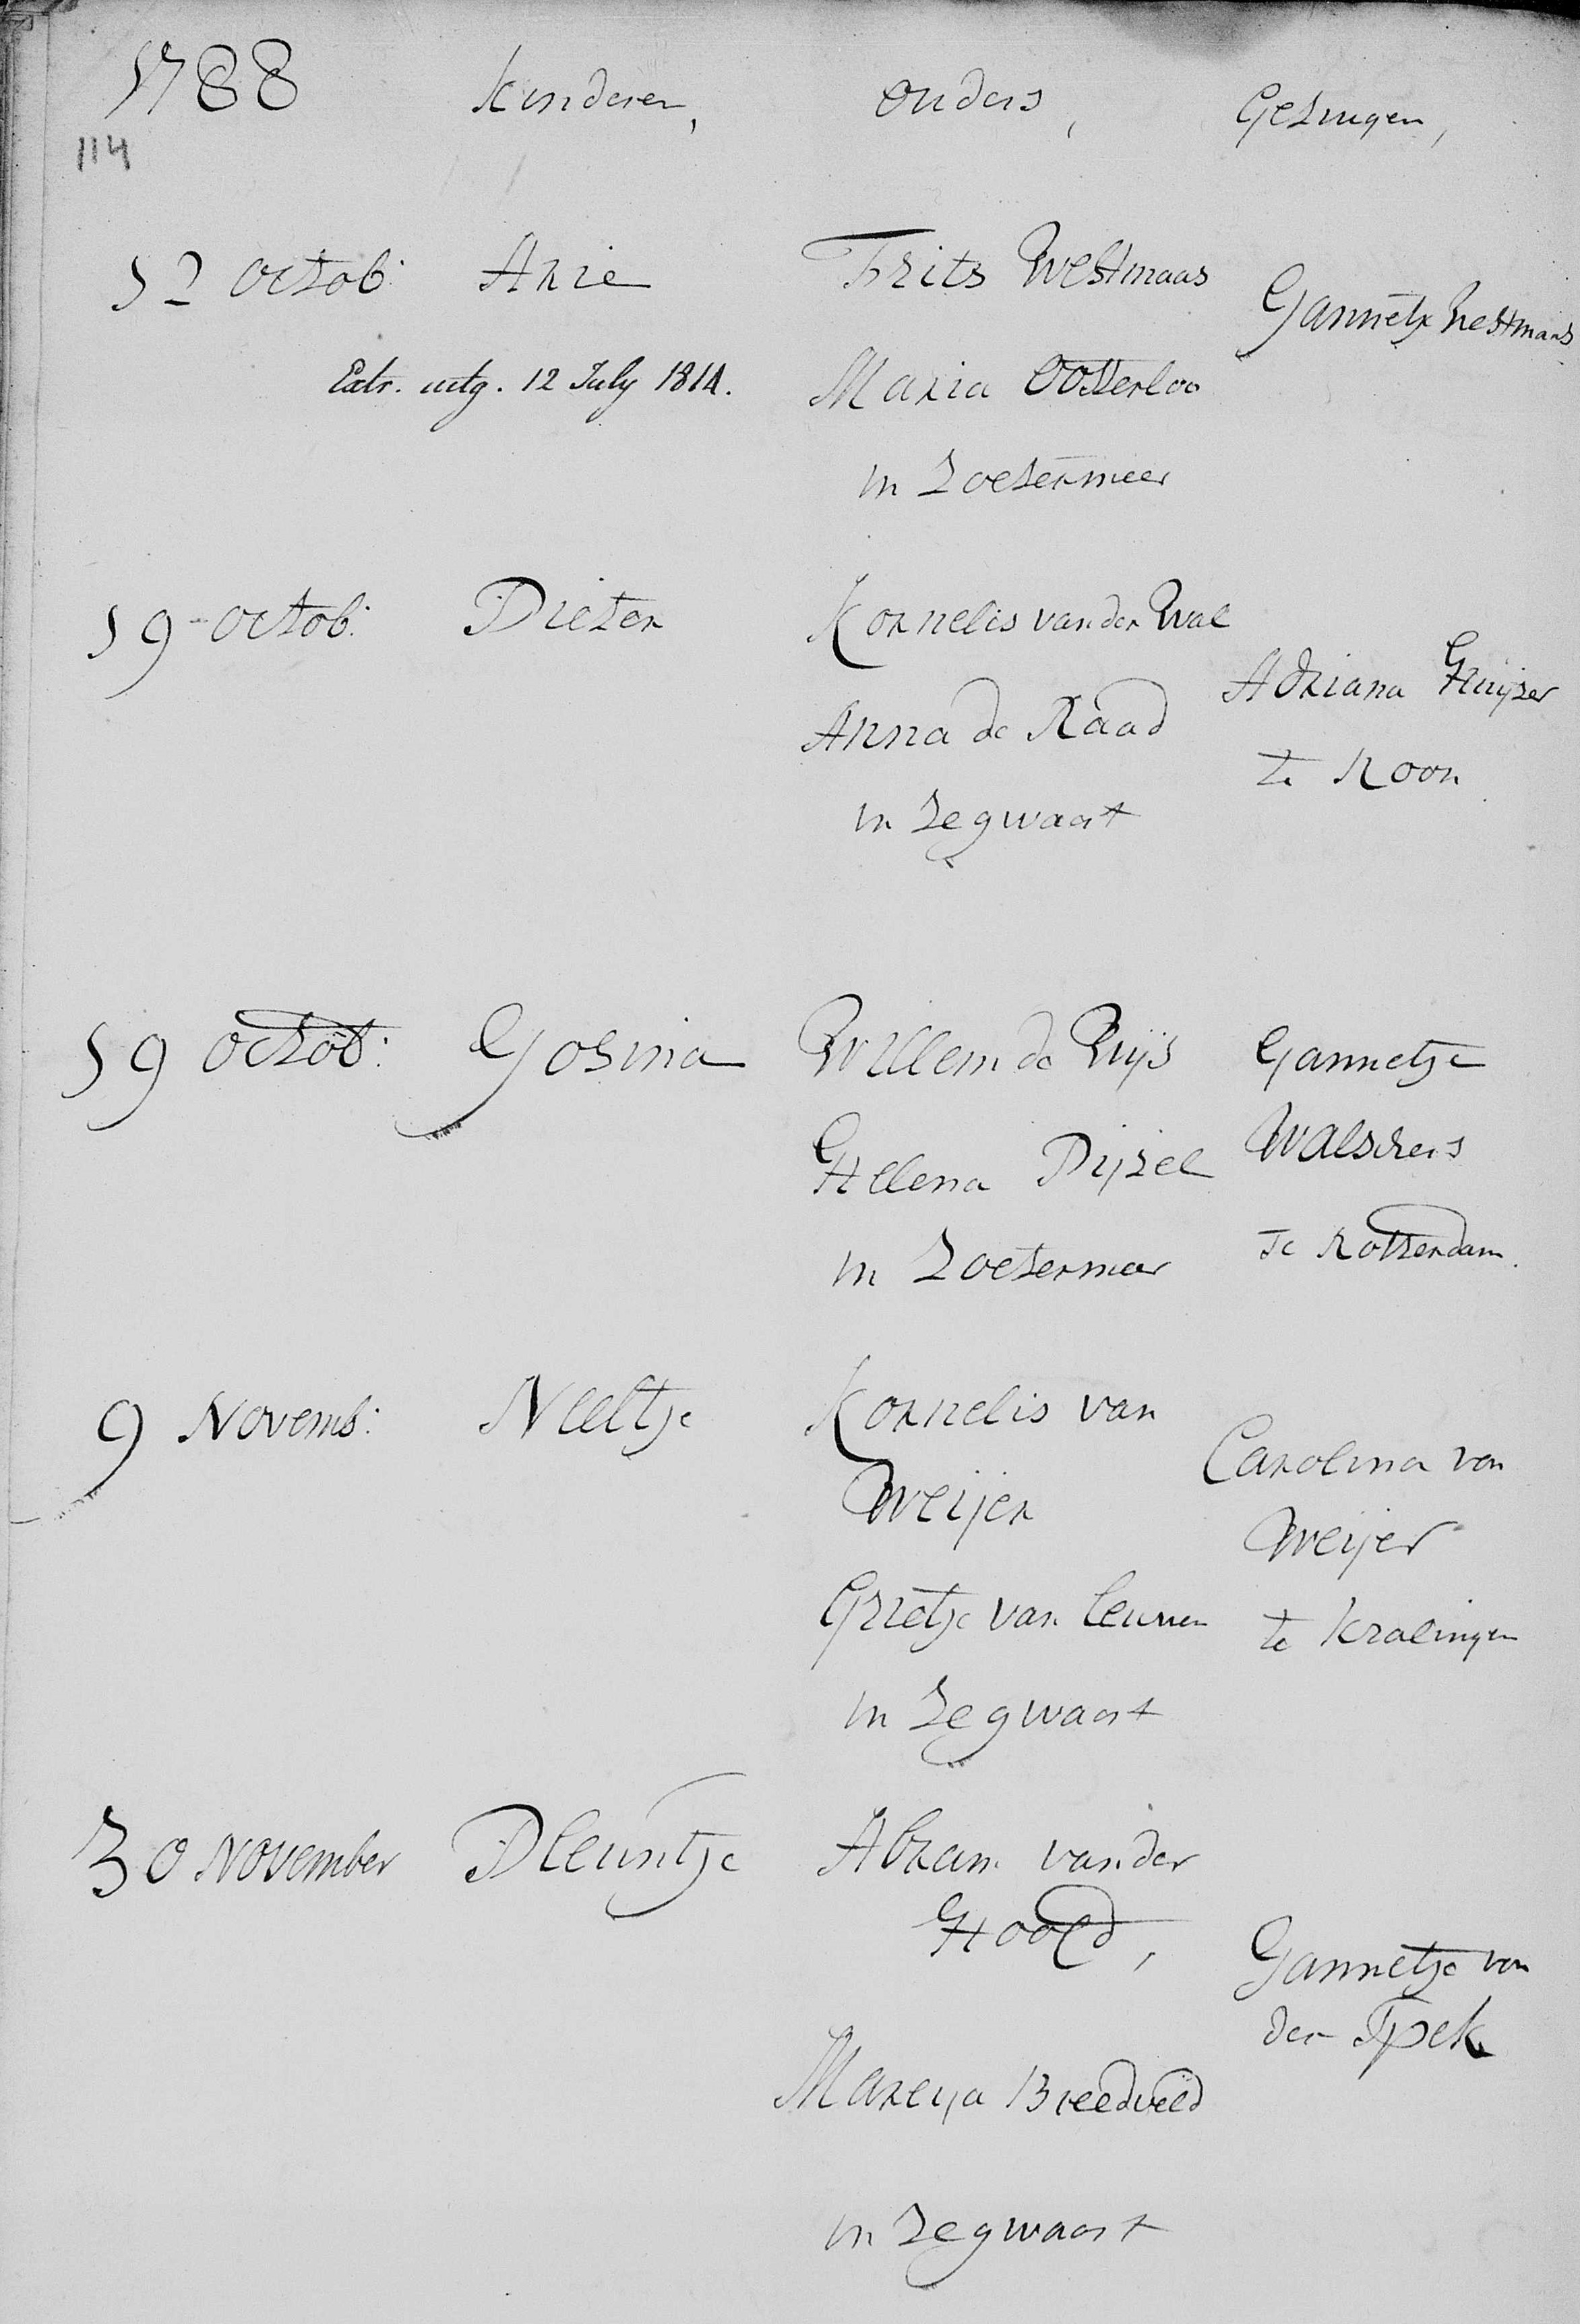 1788 Kinderen, Ouders, Getuigen,
114
12 Octob: Arie Frits Westmaas Jannetje Westmaas
Extr. uitg. 12 July 1814. Maria Oosterloo
in Zoetermeer
19 Octob: Pieter Kornelis van der Wal
Adriana Huijzer
Anna de Raad
te Roon
in Zegwaart
19 Octob: Josina Willem de Wijs Jannetje
Helena Pijzel Walschers
in Zoetermeer te Rotterdam.
9 Novemb: Neeltje Kornelis van
Carolina van
Weijer
Weijer
Grietje van Leuwen te Kralingen
in Zegwaart
30 November Pleuntje Abram van der
Hoofd, Jannetje van
der Spek
Mareya Breedveld
in Zegwaart